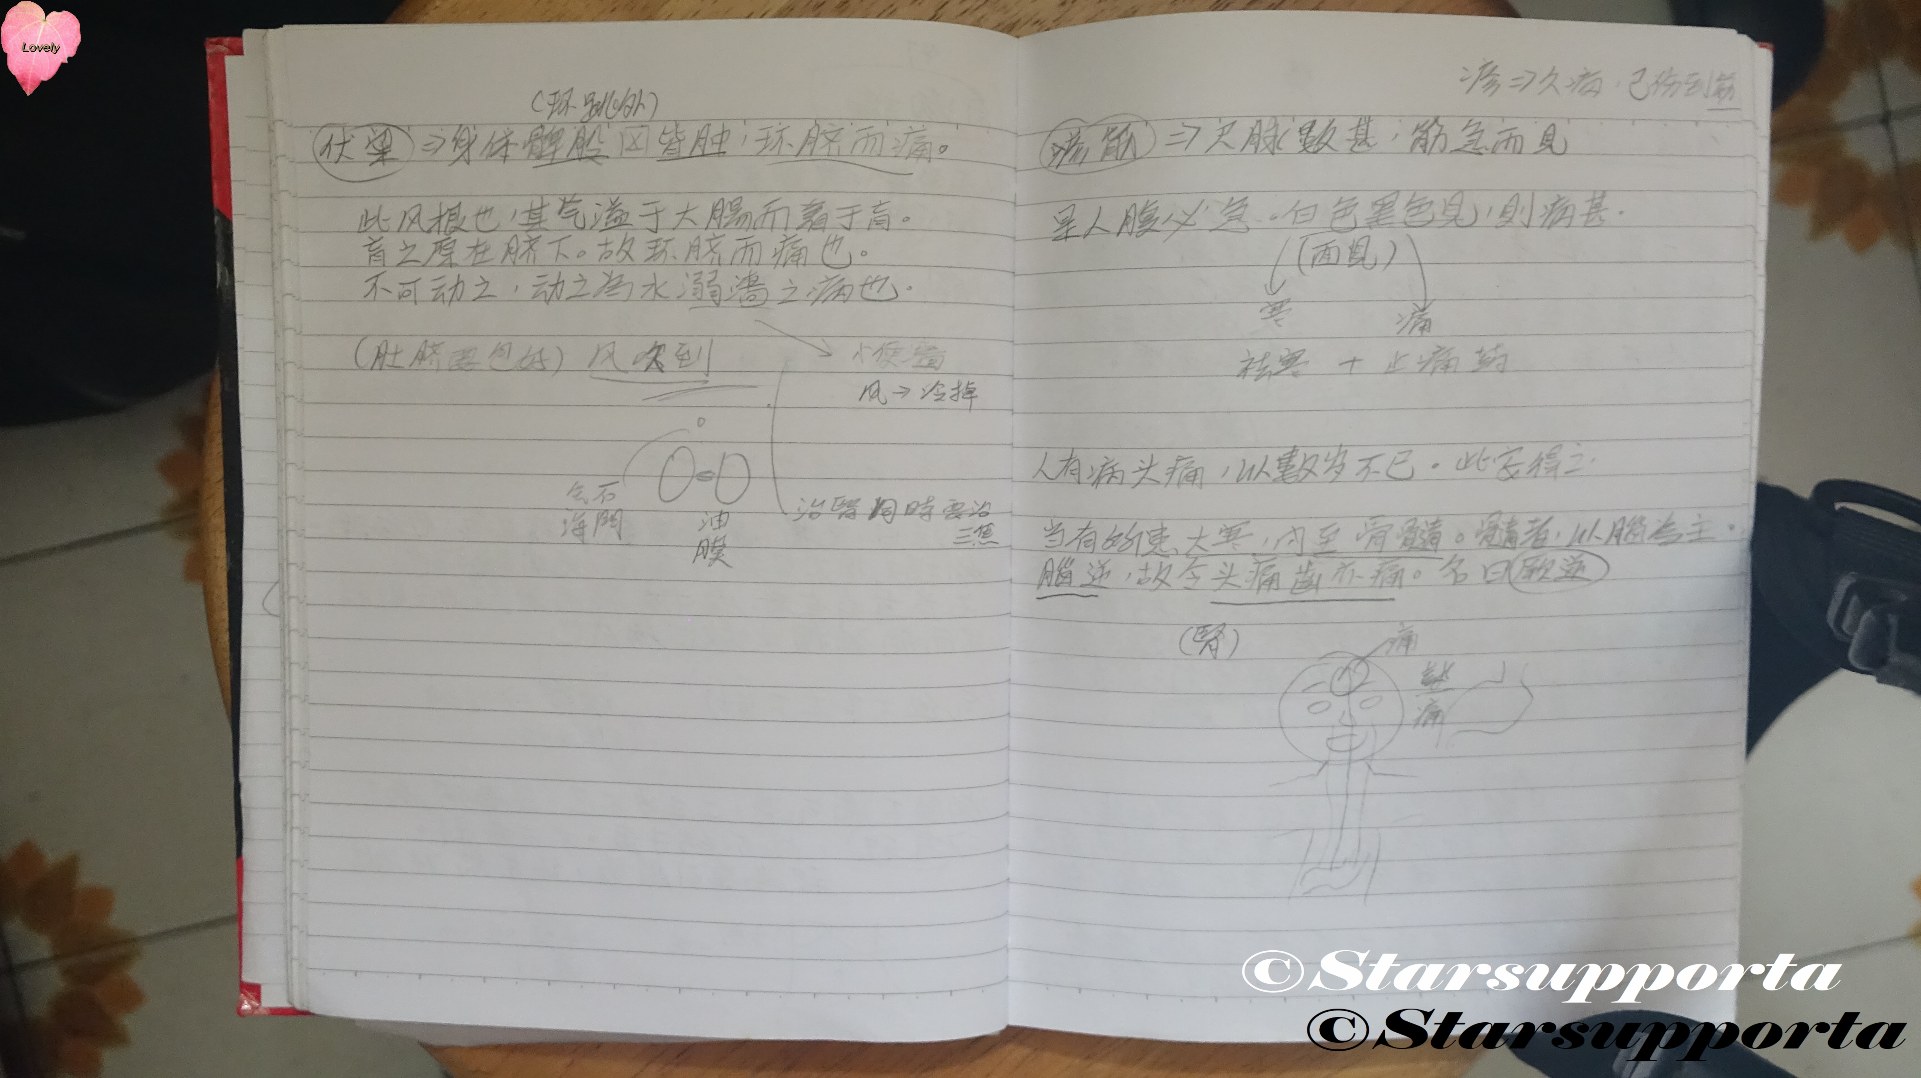 Lovely
(环跳以外)
伏梁 ⇒ 身体髀股 皆肿,环脐而痛。
此风根也,其气溢于大腸而着于肓。
肓之原在脐下。故环脐而痛也。
不可动之,动之為水溺濇之病也.
(肚脐要包好) 风吹到
小便濇
风→冷掉
气海 石門
油膜
治腎同時要治三焦
疹⇒久病.已伤到筋
疹筋 ⇒ 尺脉數甚,筋急而見
是人腹必急.白色黑色見,則病甚.
(面見)
寒 痛
祛寒 + 止痛药
人有病头痛,以數岁不已。此安得之
当有所犯大寒,内至骨髓。髓者,以腦為主.
腦逆,故令头痛齒亦痛。名曰厥逆
(腎)
痛
痛
©Starsupporta
©Starsupporta